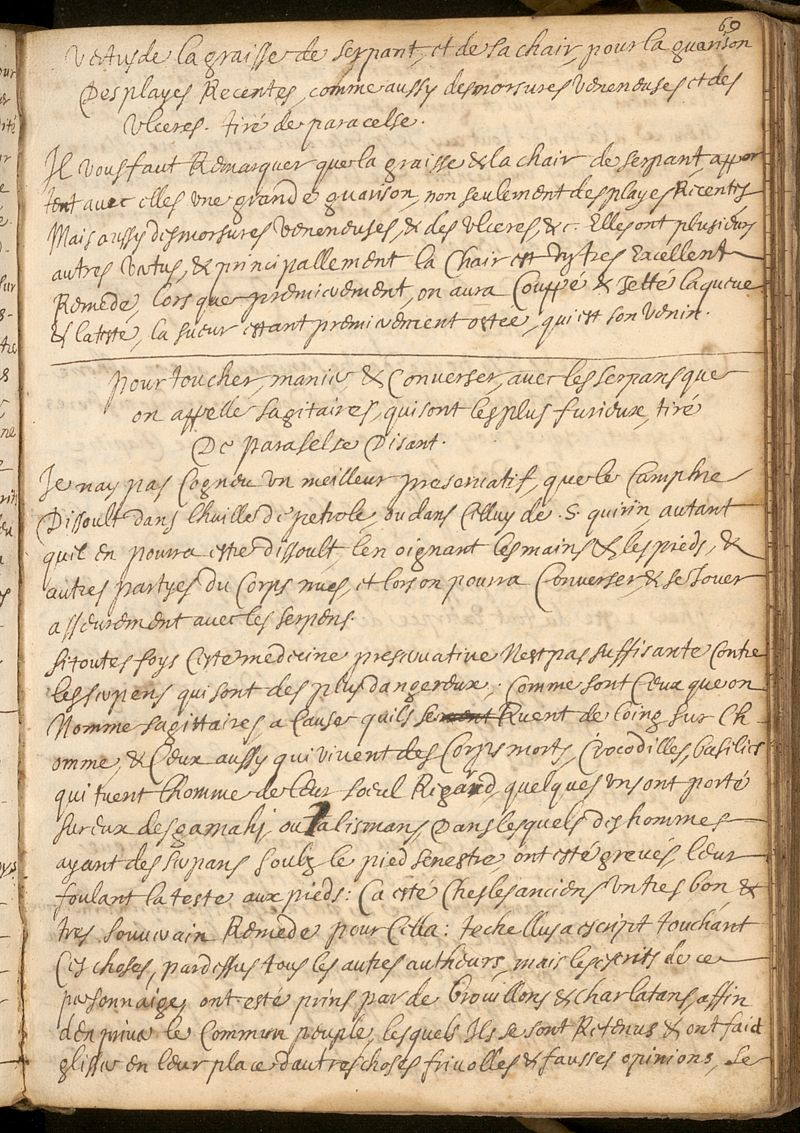 69
Vertus de la graisse de serpant, et de sa chair, pour la guarison
Des playes Recentes, comme aussy des morsures veneneuses et des
Vlceres. tiré de paracelse.
Il vous faut Remarquer que la graisse & la chair de serpant appor
tent avec elles vne grande guarison, non seulement des playes Ricentes
Mais aussy des morsures veneneuses, & des vlceres, &c. Elles ont plusieurs
autres vertus, & principallement la Chair est dytres Excellent
Remede, lors que premierement, on aura Couppé & Jetté la queue
& la teste, la sueur estant premierement ostee, qui est son venin.
pour toucher, manier & Converser, avec les serpans que
on appelle sagitaires, qui sont les plus furieux, tiré
De paraselse Disant.
Je nay pas Cogneu vn meilleur preservatif, que le Camphre
Dissoult dans lhuille de petrole, ou dans Celluy de .S. quirin, autant
quil en pourra estre dissoult, sen oignant les mains & les pieds, &
autres partyes du Corps nues, et lors on pourra Converser, & se Jouer
asseurement avec les serpens.
si toutes foys Ceste medecine preservative Nest pas suffisante Contre
les serpens qui sont des plus dangereux, Comme sont Ceux que on
Nomme sagittaires a Cause quils se Ruent de loing sur lh-
omme, & Ceux aussy qui vivent des Corps morts, Crocodilles, basilics
qui tuent lhomme de leur soeul Regard, quelques vns ont porté
sur eux des gamahj, ou Talismans, Dans lesquels des hommes
ayant des serpans soubz le pied senestre ont esté gravés, leur
foulant la teste aux pieds: Ca esté Ches les anciens vn tres bon &
tres souverain Remede pour Cella: techellus a escript touchant
Ces choses, par dessus tous les autres autheurs, mais les escrits de ce
personnaige, ont esté prins par de brouillons & charlatans, affin
den priver le Commun peuple, lesquels Ils se sont Retenus & ont faict
glisser en leur place dautres choses frivolles & fausses opinions, Le